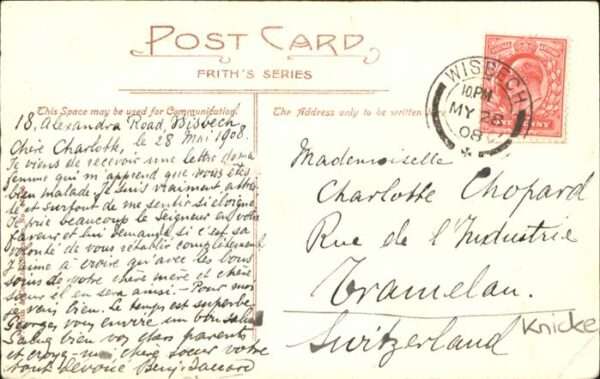 POST CARD
FRITH'S SERIES
This Space may be used for Communication.
The Address only to be written here
WISBECH
10.PM
MY 28
08
18, Alexandra Road, Wisbech
Chère Charlotte, le 28 Mai 1908.
Je viens de recevoir une lettre de ma
femme qui m'apprend que vous êtes
bien malade. Je suis vraiment attris-
té et surtout de me sentir si éloigné.
Je prie beaucoup le Seigneur en votre
faveur et lui demande si c'est sa
volonté de vous rétablir complètement
J'aime à croire qu'avec les bons
soins de votre chère mère et chère
sœur il en sera ainsi. - Pour moi
je vais bien. Le temps est superbe
Georges vous envoie un bon salut
Saluez bien vos parents
et croyez-moi, chère sœur votre
tout dévoué Benj.
Mademoiselle
Charlotte Chopard
Rue de l'Industrie
Tramelan.
Switzerland
Knicke